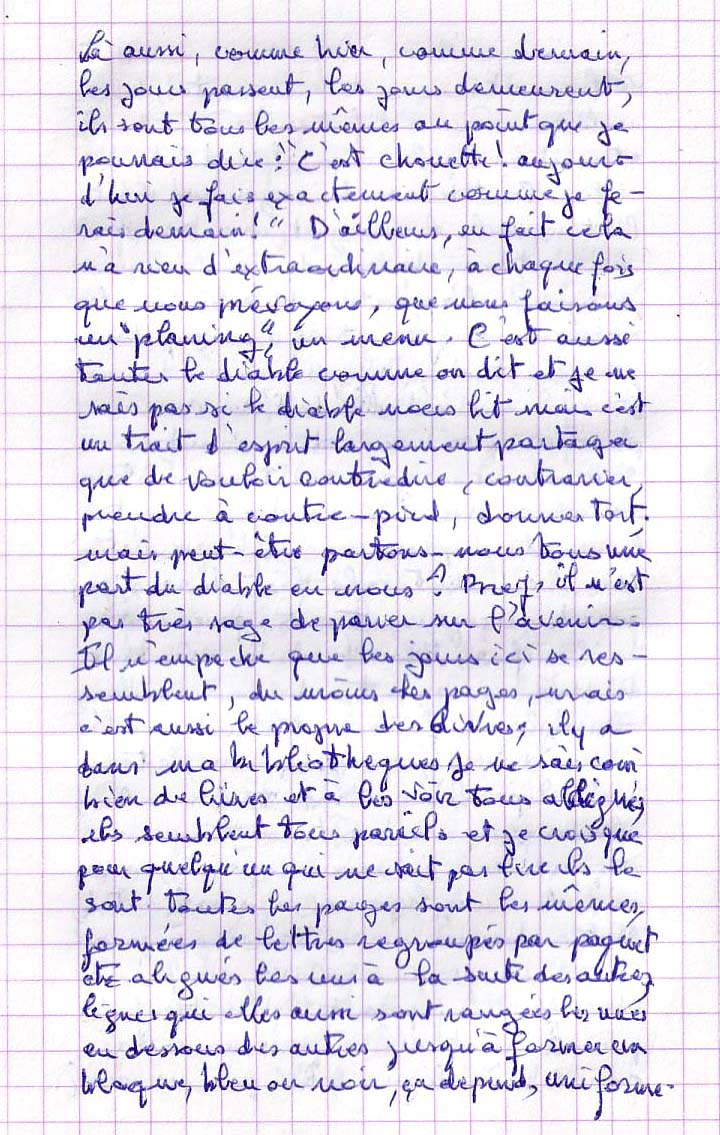 Là aussi, comme hier, comme demain,
les jours passent, les jours demeurent,
ils sont tous les mêmes au point que je
pourrais dire : "C'est chouette ! aujour-
d'hui je fais exactement comme je fe-
rais demain !" D'ailleurs, en fait cela
n'a rien d'extraordinaire, à chaque fois
que nous prévoyons, que nous faisons
un "planing", un menu. C'est aussi
tenter le diable comme on dit et je ne
sais pas si le diable nous lit mais c'est
un trait d'esprit largement partagé
que de vouloir contredire, contrarier,
prendre à contre-pied, donner tort.
mais peut-être portons-nous tous une
part du diable en nous ? Bref, il n'est
pas très sage de parier sur l'avenir.
Il n'empeche que les jours ici se res-
semblent, du moins les pages, mais
c'est aussi le propre des livres, il y a
dans ma bibliotheques je ne sais com
bien de livres et à les voir tous alignés,
ils semblent tous pareils et je crois que
pour quelqu'un qui ne sait pas lire ils le
sont. Toutes les pages sont les mêmes,
formées de lettres regroupés par paquet
et alignés les uns à la suite des autres,
lignes qui elles aussi sont rangées les unes
en dessous des autres jusqu'à former un
bloque, bleu ou noir, ça depend, uniforme.